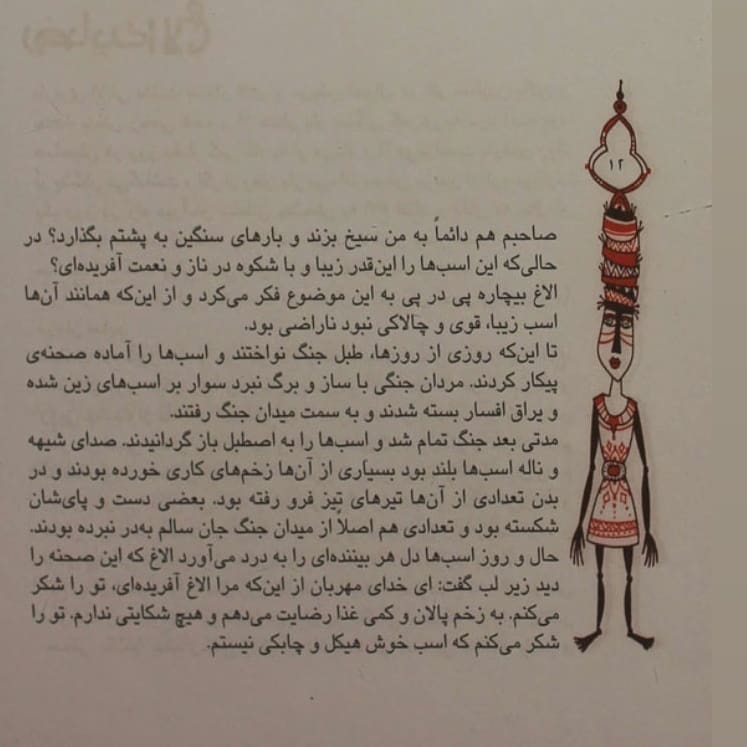 ۱۲
صاحبم هم دائماً به من سیخ بزند و بارهای سنگین به پشتم بگذارد؟ در
حالی‌که این اسب‌ها را این‌قدر زیبا و با شکوه در ناز و نعمت آفریده‌ای؟
الاغ بیچاره پی در پی به این موضوع فکر می‌کرد و از این‌که همانند آن‌ها
اسب زیبا، قوی و چالاکی نبود ناراضی بود.
تا این‌که روزی از روزها، طبل جنگ نواختند و اسب‌ها را آماده صحنه‌ی
پیکار کردند. مردان جنگی با ساز و برگ نبرد سوار بر اسب‌های زین شده
و یراق افسار بسته شدند و به سمت میدان جنگ رفتند.
مدتی بعد جنگ تمام شد و اسب‌ها را به اصطبل باز گردانیدند. صدای شیهه
و ناله اسب‌ها بلند بود بسیاری از آن‌ها زخم‌های کاری خورده بودند و در
بدن تعدادی از آن‌ها تیرهای تیز فرو رفته بود. بعضی دست و پای‌شان
شکسته بود و تعدادی هم اصلاً از میدان جنگ جان سالم به‌در نبرده بودند.
حال و روز اسب‌ها دل هر بیننده‌ای را به درد می‌آورد الاغ که این صحنه را
دید زیر لب گفت: ای خدای مهربان از این‌که مرا الاغ آفریده‌ای، تو را شکر
می‌کنم. به زخم پالان و کمی غذا رضایت می‌دهم و هیچ شکایتی ندارم. تو را
شکر می‌کنم که اسب خوش هیکل و چابکی نیستم.